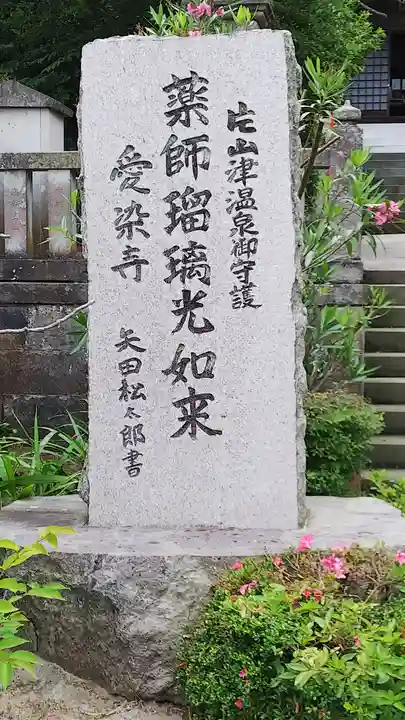 片山津温泉御守護
薬師瑠璃光如来
愛染寺
矢田松太郎書